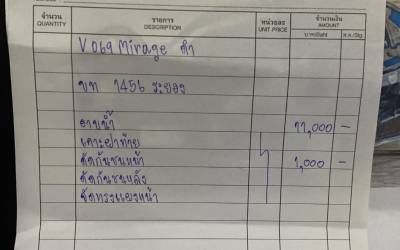 จำนวน รายการ หน่วยละ จำนวนเงิน
QUANTITY DESCRIPTION UNIT PRICE AMOUNT
บาท/Baht ส.ต./Stg.
V069 Mirage ดำ
ขท 1456 ระยอง
อาบน้ำ 11,000 -
เคาะฝาท้าย
ตัดกันชนหน้า 1,000 -
ตัดกันชนหลัง
ขัดทรงแผงหน้า